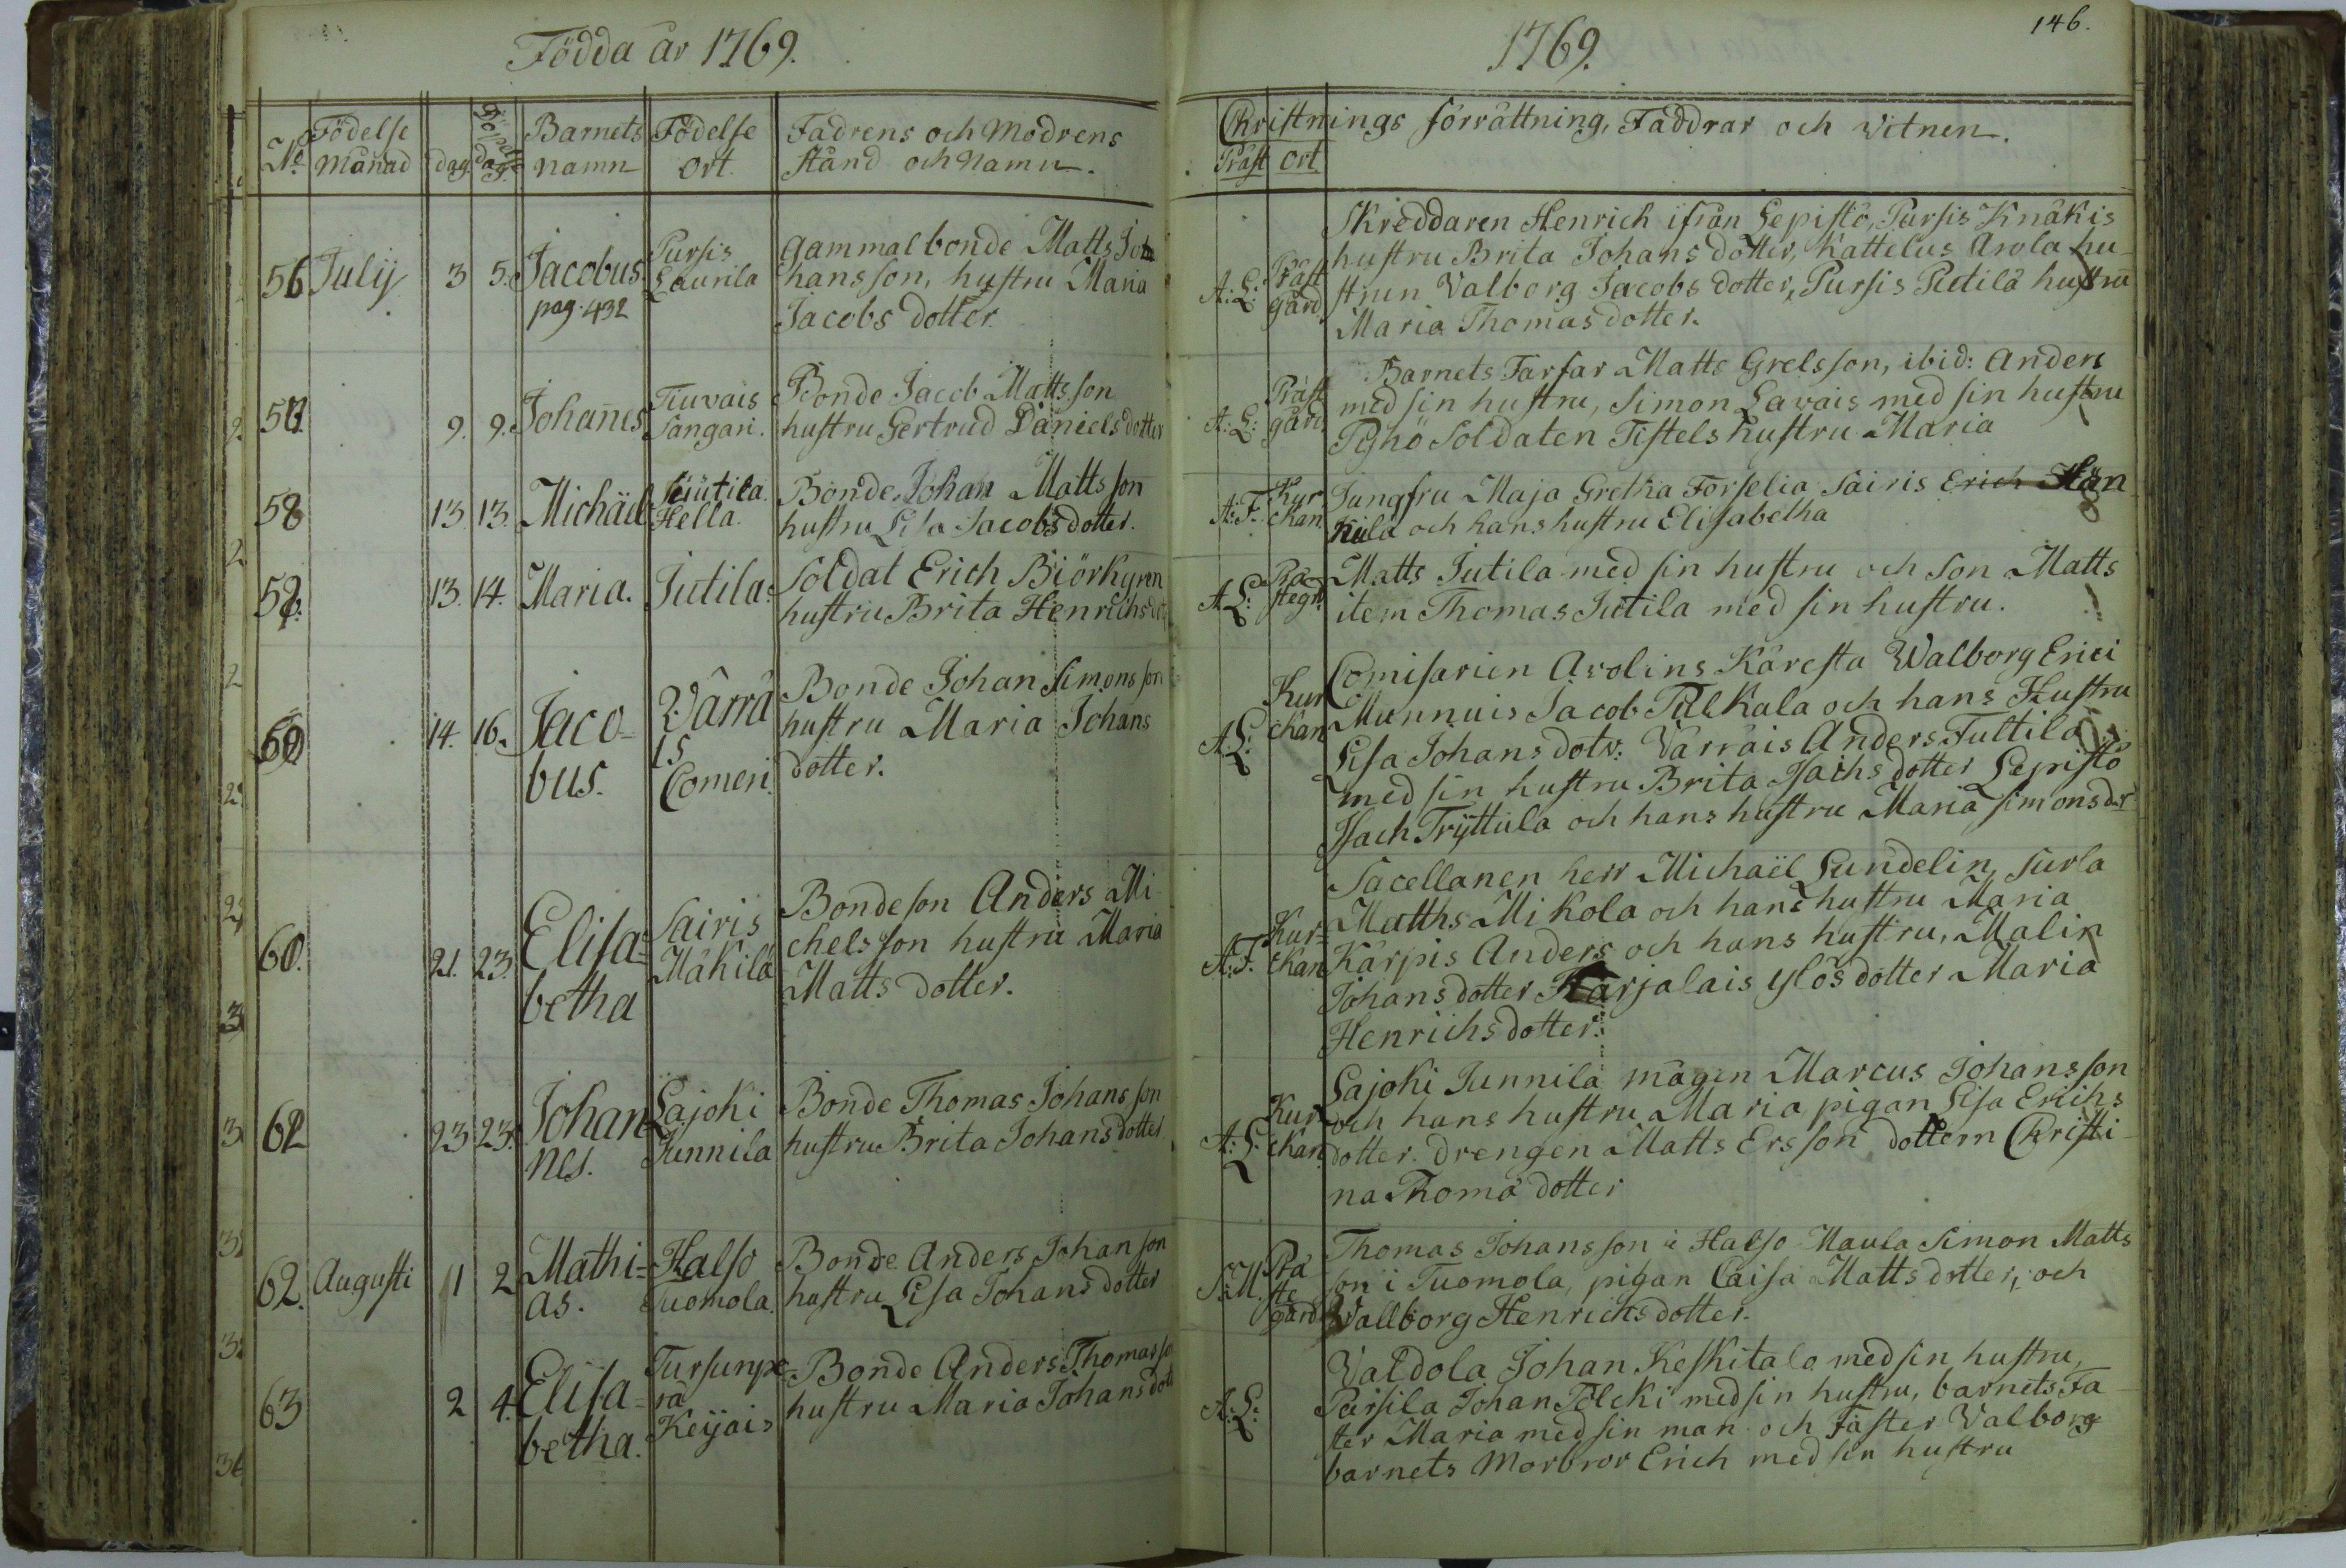 Födda år 1769.
No Födelse månad dag. Döpelse dag. Barnets namn Födelse ort. Fadrens och Modrens stånd och Namn.
56 Julij 3 5. Jacobus pag. 432
Pursis Laurila
Gammal bonde Matts Jo
hansson, hustru Maria
Jacobs dotter
57. 9. 9. Johanes
Tiuvais Sangari.
Bonde Jacob Mattsson
hustru Gertrud Daniels dotter
58 13 13 Michäel
Hella.
Bonde Johan Mattsson
hustru Lisa Jacobs dotter.
59. 13. 14. Maria. Jutila.
Soldat Erich Biörkgren
hustru Brita Henrichs
14. 16. Jaco-
bus.
Värrä
is
Comeri.
Bonde Johan Simonsson
hustru Maria Johans
dotter.
60. 21. 23. Elisa-
betha
Sairis
Mäkilä
Bondeson Anders Mi-
chelsson hustru Maria
Matts dotter.
23 23. Johan
nes.
Lajoki
Junnila
Bonde Thomas Johansson
hustru Brita Johans dotter
62. Augusti 1 2 Mathi-
as.
Halso
Tuomola.
Bonde Anders Johanson
hustru Lisa Johans dotter
63 2 4. Elisa-
betha.
Tursunpe-
rä
Keijais
Bonde Anders Thomasso
hustru Maria Johans dot
1769.
146.
Christnings förrättning, Faddrar och Vitnen.
Präst Ort.
A: L: Präst gård
Skreddaren Henrich ifrån Lepistö, Pursis Knäkis
hustru Brita Johans dotter, Kattelus Arola hu-
strun Valborg Jacobs dotter, Pursis Pietilä hustru
Maria Thomas dotter.
A: L: Präst gård
Barnets Farfar Matts Grelsson, ibid: Anders
med sin hustru, Simon Lavais med sin hustru
Pyhö Soldaten Tistels hustru Maria
A: F. Kyr ckan
Jungfru Maja Gretha Forselia Sairis Erich Hän
kilä och hans hustru Elisabetha
A. L: Prä stegd.
Matts Jutila med sin hustru och son Matts
item Thomas Jutila med sin hustru.
A: L: Kyr ckan
Comisarien Arolins Käresta Walborg Erici
Munnuis Jacob Pulkala och hans Hustru
Lisa Johans dotr: Värräis Anders Tuttila
med sin hustru Brita Isachs dotter Lepistö
Isach Tryttula och hans hustru Maria Simonsdr
A: F. Kyr- ckan
Sacellanen herr Michaël Lundelin, Jurla
Matths Mikola och hans hustru Maria
Kärpis Anders och hans hustru, Malin
Johans dotter Karjalais Ylös dotter Maria
Henrichs dotter.
A: L: Kyr ckan
Lajoki Junnila mågen Marcus Johansson
och hans hustru Maria, pigan Lisa Erichs
dotter. drengen Matts Ersson dottern Christi-
na Thomä dotter
Prä ste gård
Thomas Johansson i Halso Maula Simon Matts
son i Tuomola, pigan Caisa Matts dotter, och
Wallborg Henrichs dotter.
A: L:
Valdola Johan Keskitalo med sin hustru,
Pärsila Johan Pölcki med sin hustru, barnets Fa-
ster Maria med sin man och Faster Valborg
barnets Morbror Erich med sin hustru